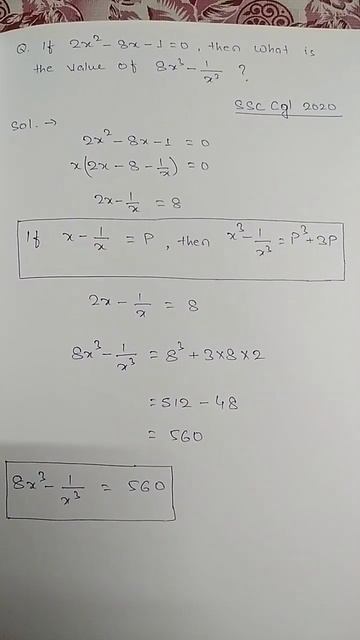 Q. If 2x² - 8x - 1 = 0, then what is
the value of 8x³ - 1/x³ ?
SSC Cgl 2020
Sol. →
2x² - 8x - 1 = 0
x(2x - 8 - 1/x) = 0
2x - 1/x = 8
If x - 1/x = P, then x³ - 1/x³ = P³ + 3P
2x - 1/x = 8
8x³ - 1/x³ = 8³ + 3×8×2
= 512 - 48
= 560
8x³ - 1/x³ = 560